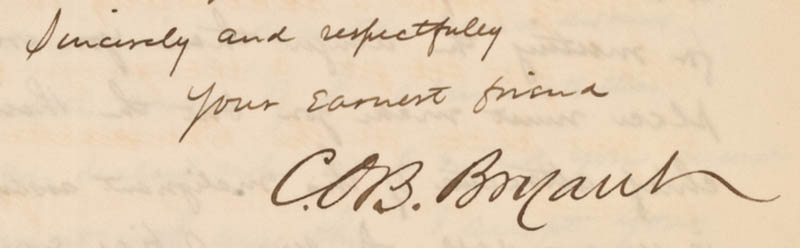 Sincerely and respectfully
Your Earnest friend
C.OB. Bryant